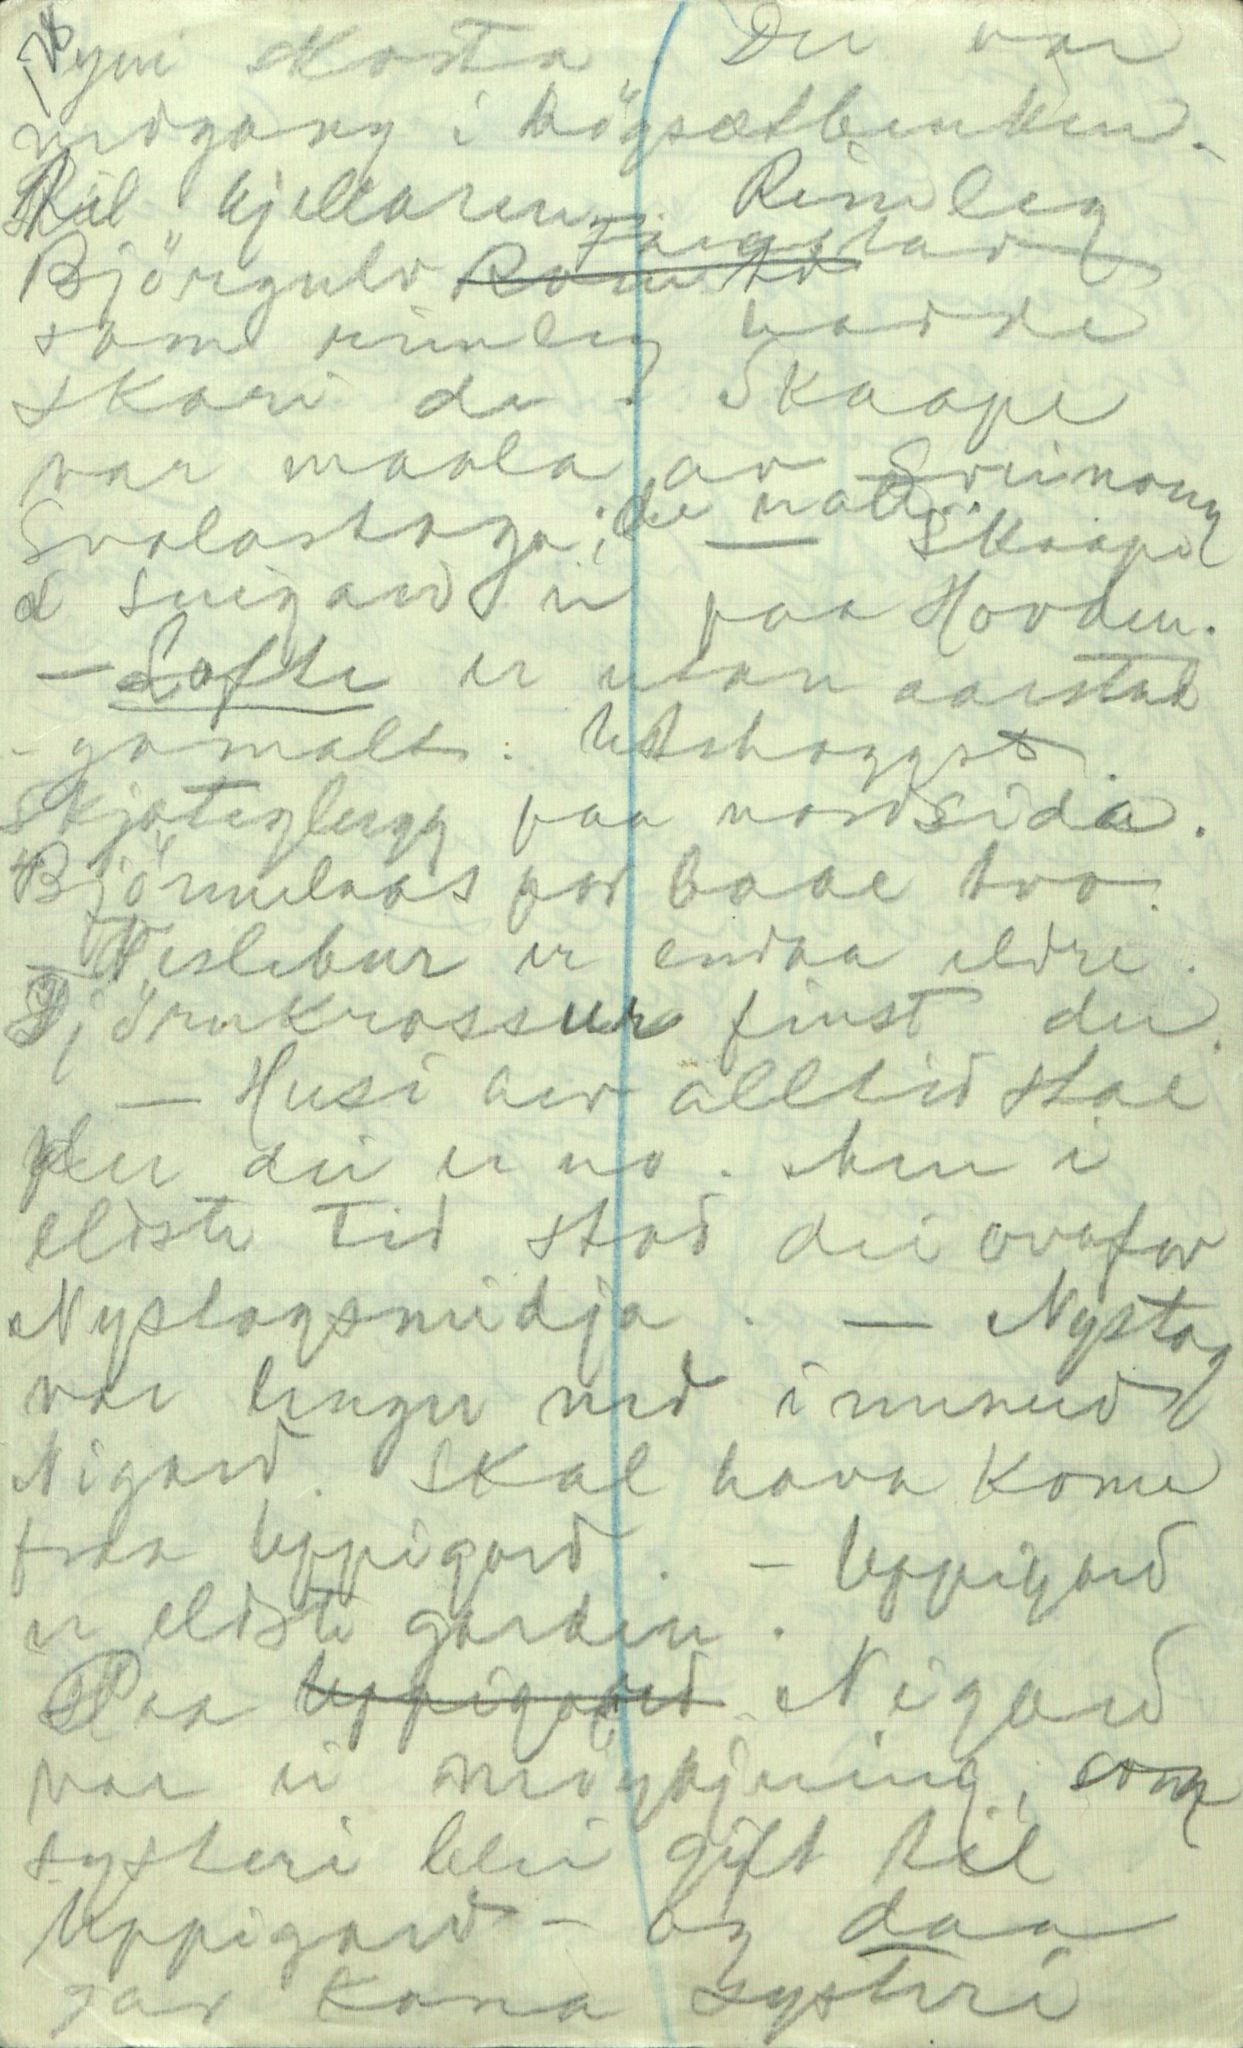 syni Kosta. Der var
nedgang i högsætbenken
til kjellaren. Rimleg
Björgulv Taigstad
som rimleg hadde
skori de. Skaape
var maala av Sveinung
Svalastoga; de male Skaape
i Suigard ii paa Hovden.
— Lofte er utan aarstal
- gamalt. Uthoggst
skjoteglugg paa nordsida.
Björnelaas for baae tvo.
- Neslebur er endaa eldre.
Tjörukrossur finst der.
— Husi hev alltid stae
der dei er no. Men i
eldste tid stod dei ovafor
Nystogsmidja. — Nystog
var lenger ned i
Nigard. Skal hava kome
fraa Uppigard. - Uppigard
er eldste garden.
Paa Uppigard Nigard
var ei som
systeri blei gift til
Uppigard - og daa
gav kona systeri